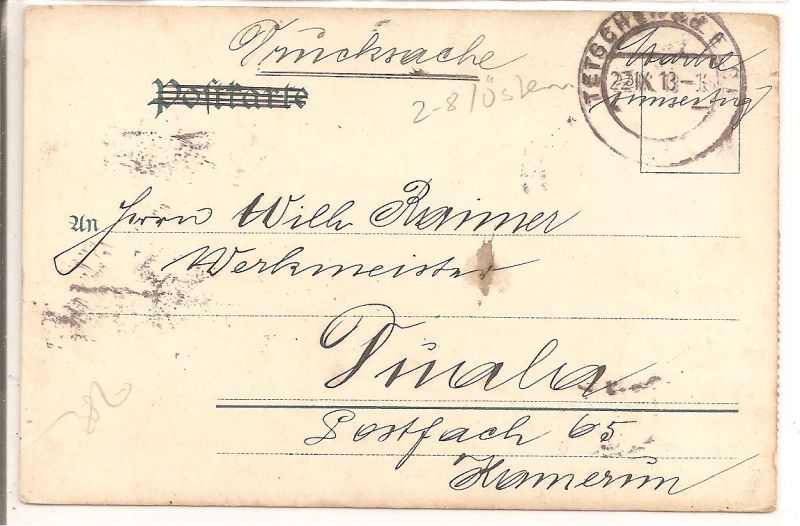 Drucksache
Postkarte
2-8 / Österr
TETSCHEN a.d. E
22 IX 13-
Marke
umseitig
An Herrn Wilh Rainner
Werkmeister
Duala
Postfach 65
Kamerun